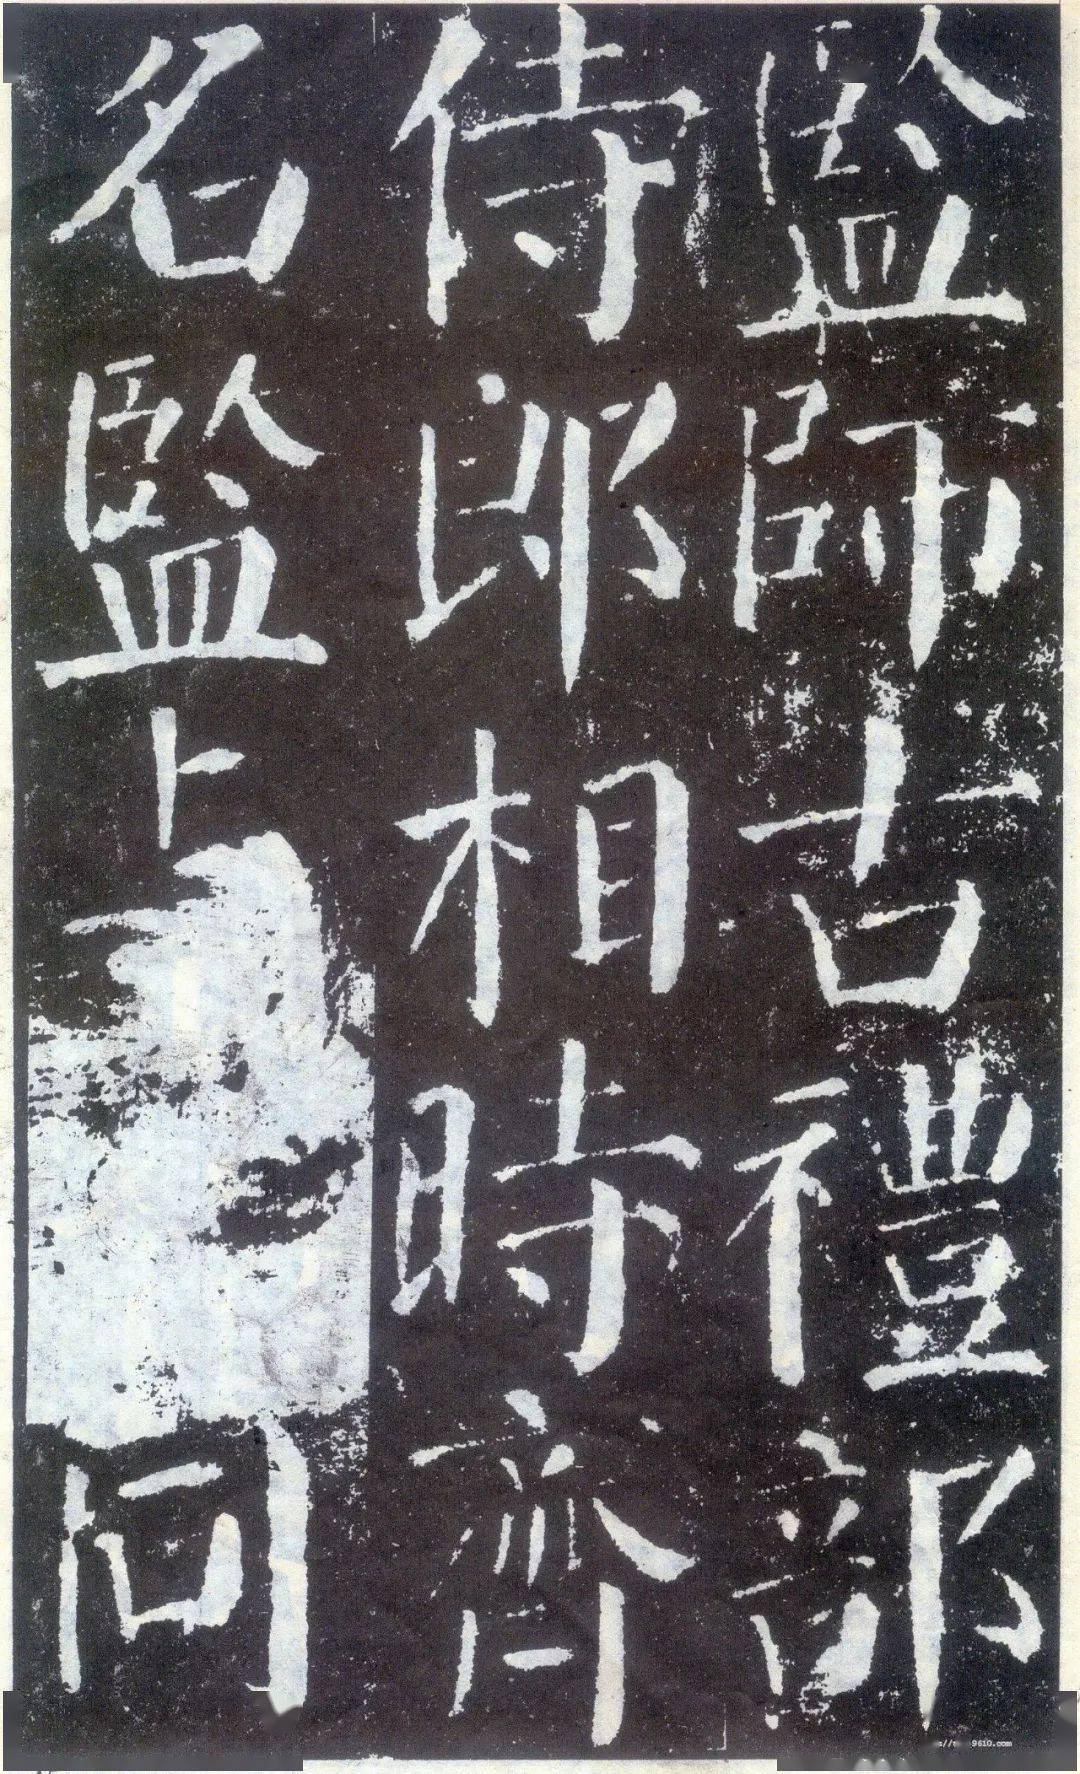 監師古禮部
侍郎相時齊
名監同
9610.com